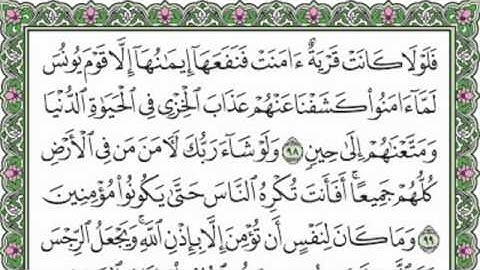 فَلَوْلَا كَانَتْ قَرْيَةٌ ءَامَنَتْ فَنَفَعَهَآ إِيمَٰنُهَآ إِلَّا قَوْمَ يُونُسَ
لَمَّآ ءَامَنُوا۟ كَشَفْنَا عَنْهُمْ عَذَابَ الْخِزْيِ فِي الْحَيَوٰةِ الدُّنْيَا
وَمَتَّعْنَٰهُمْ إِلَىٰ حِينٍ ٩٨ وَلَوْ شَآءَ رَبُّكَ لَءَامَنَ مَن فِي الْأَرْضِ
كُلُّهُمْ جَمِيعًا ۚ أَفَأَنتَ تُكْرِهُ النَّاسَ حَتَّىٰ يَكُونُوا۟ مُؤْمِنِينَ
٩٩ وَمَا كَانَ لِنَفْسٍ أَن تُؤْمِنَ إِلَّا بِإِذْنِ اللَّهِ ۚ وَيَجْعَلُ الرِّجْسَ